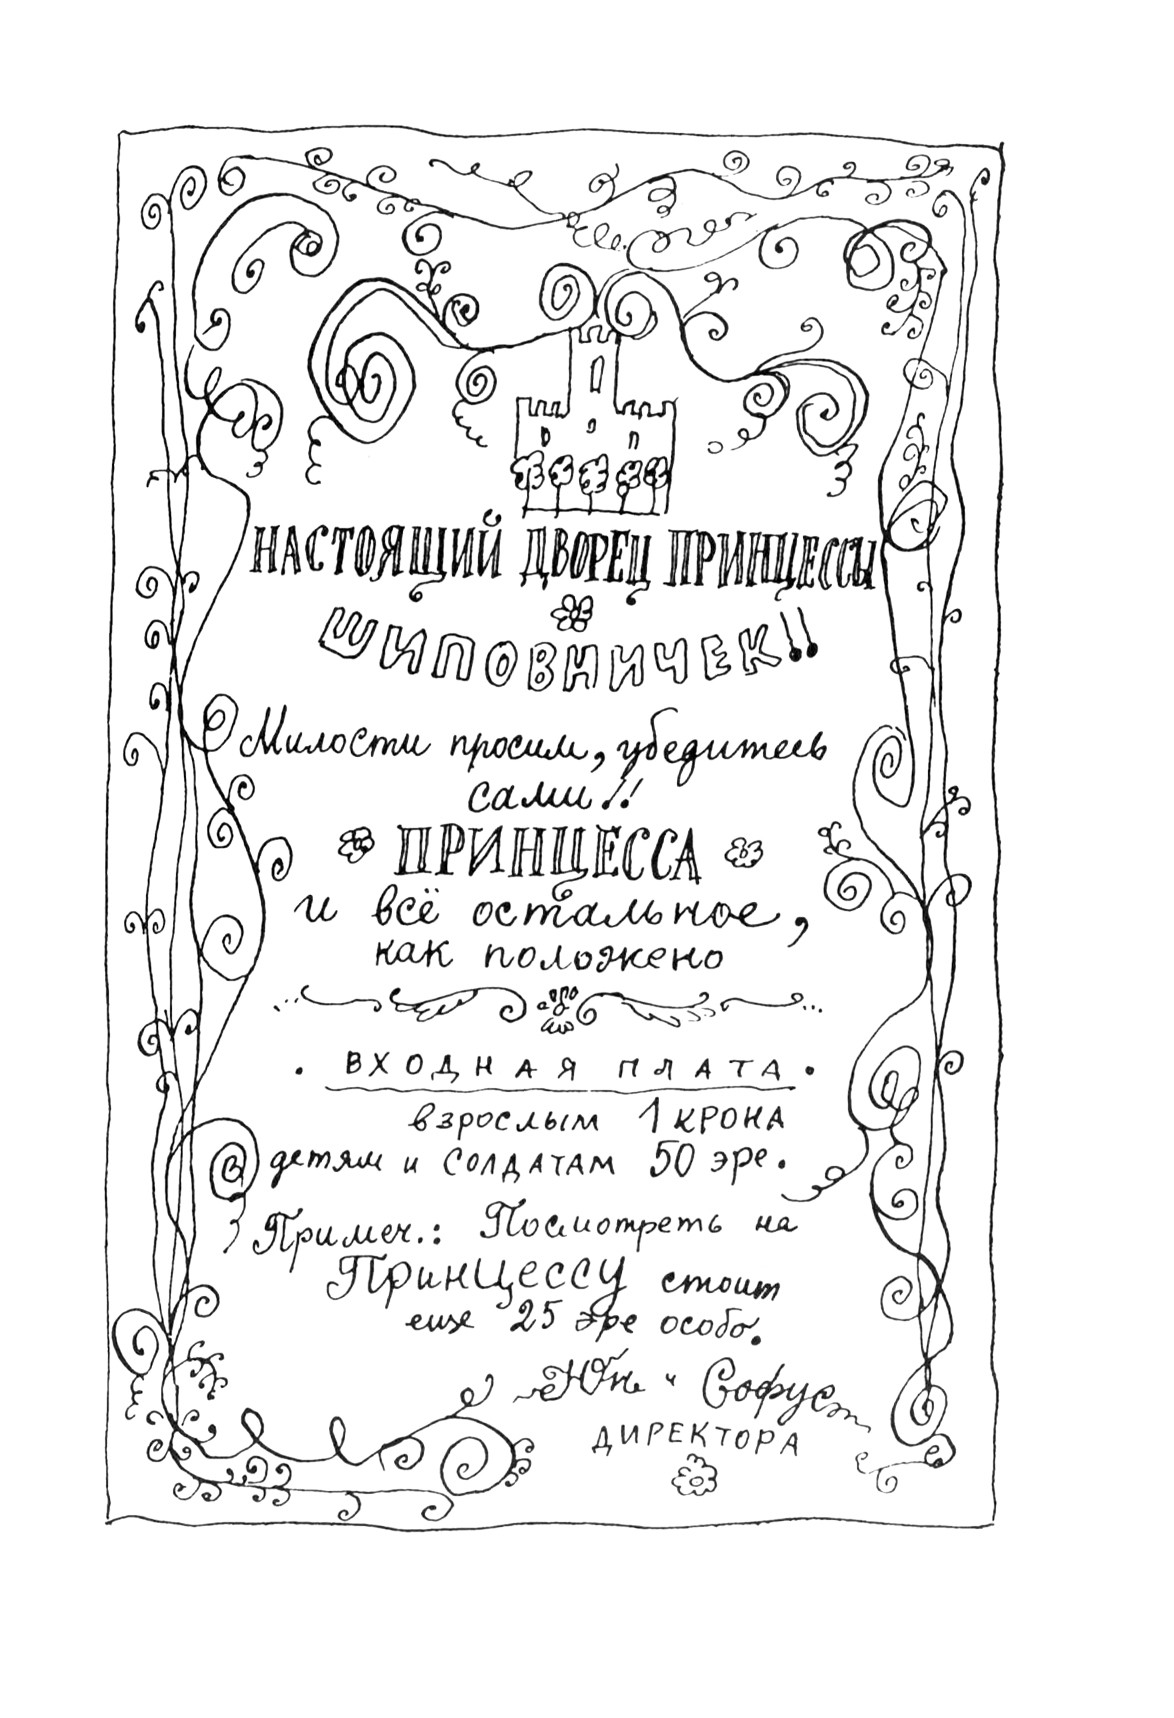 НАСТОЯЩИЙ ДВОРЕЦ ПРИНЦЕССЫ
ШИПОВНИЧЕК!!
Милости просим, убедитесь
сами!!
ПРИНЦЕССА
и всё остальное,
как положено
ВХОДНАЯ ПЛАТА
взрослым 1 КРОНА
детям и СОЛДАТАМ 50 эре.
Примеч.: Посмотреть на
Принцессу стоит
еще 25 эре особо.
Юн и Софус
ДИРЕКТОРА